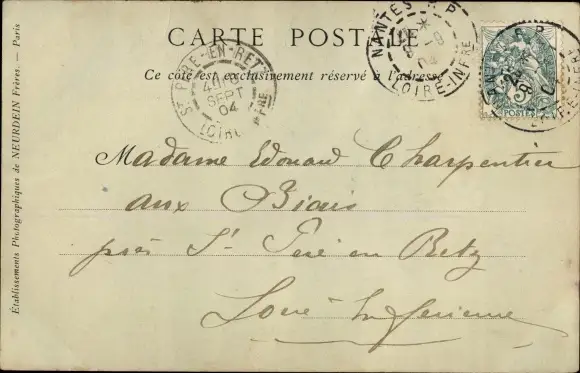 CARTE POSTALE
Ce côté est exclusivement réservé à l'adresse
Madame Edouard Charpentier
aux Biais
près St Père en Retz
Loire Inférieure
Établissements Photographiques de NEURDEIN Frères. — Paris
ST PÈRE-EN-RETZ
SEPT
04
LOIRE INFRE
NANTES R.P.
LOIRE-INFRE
POSTES